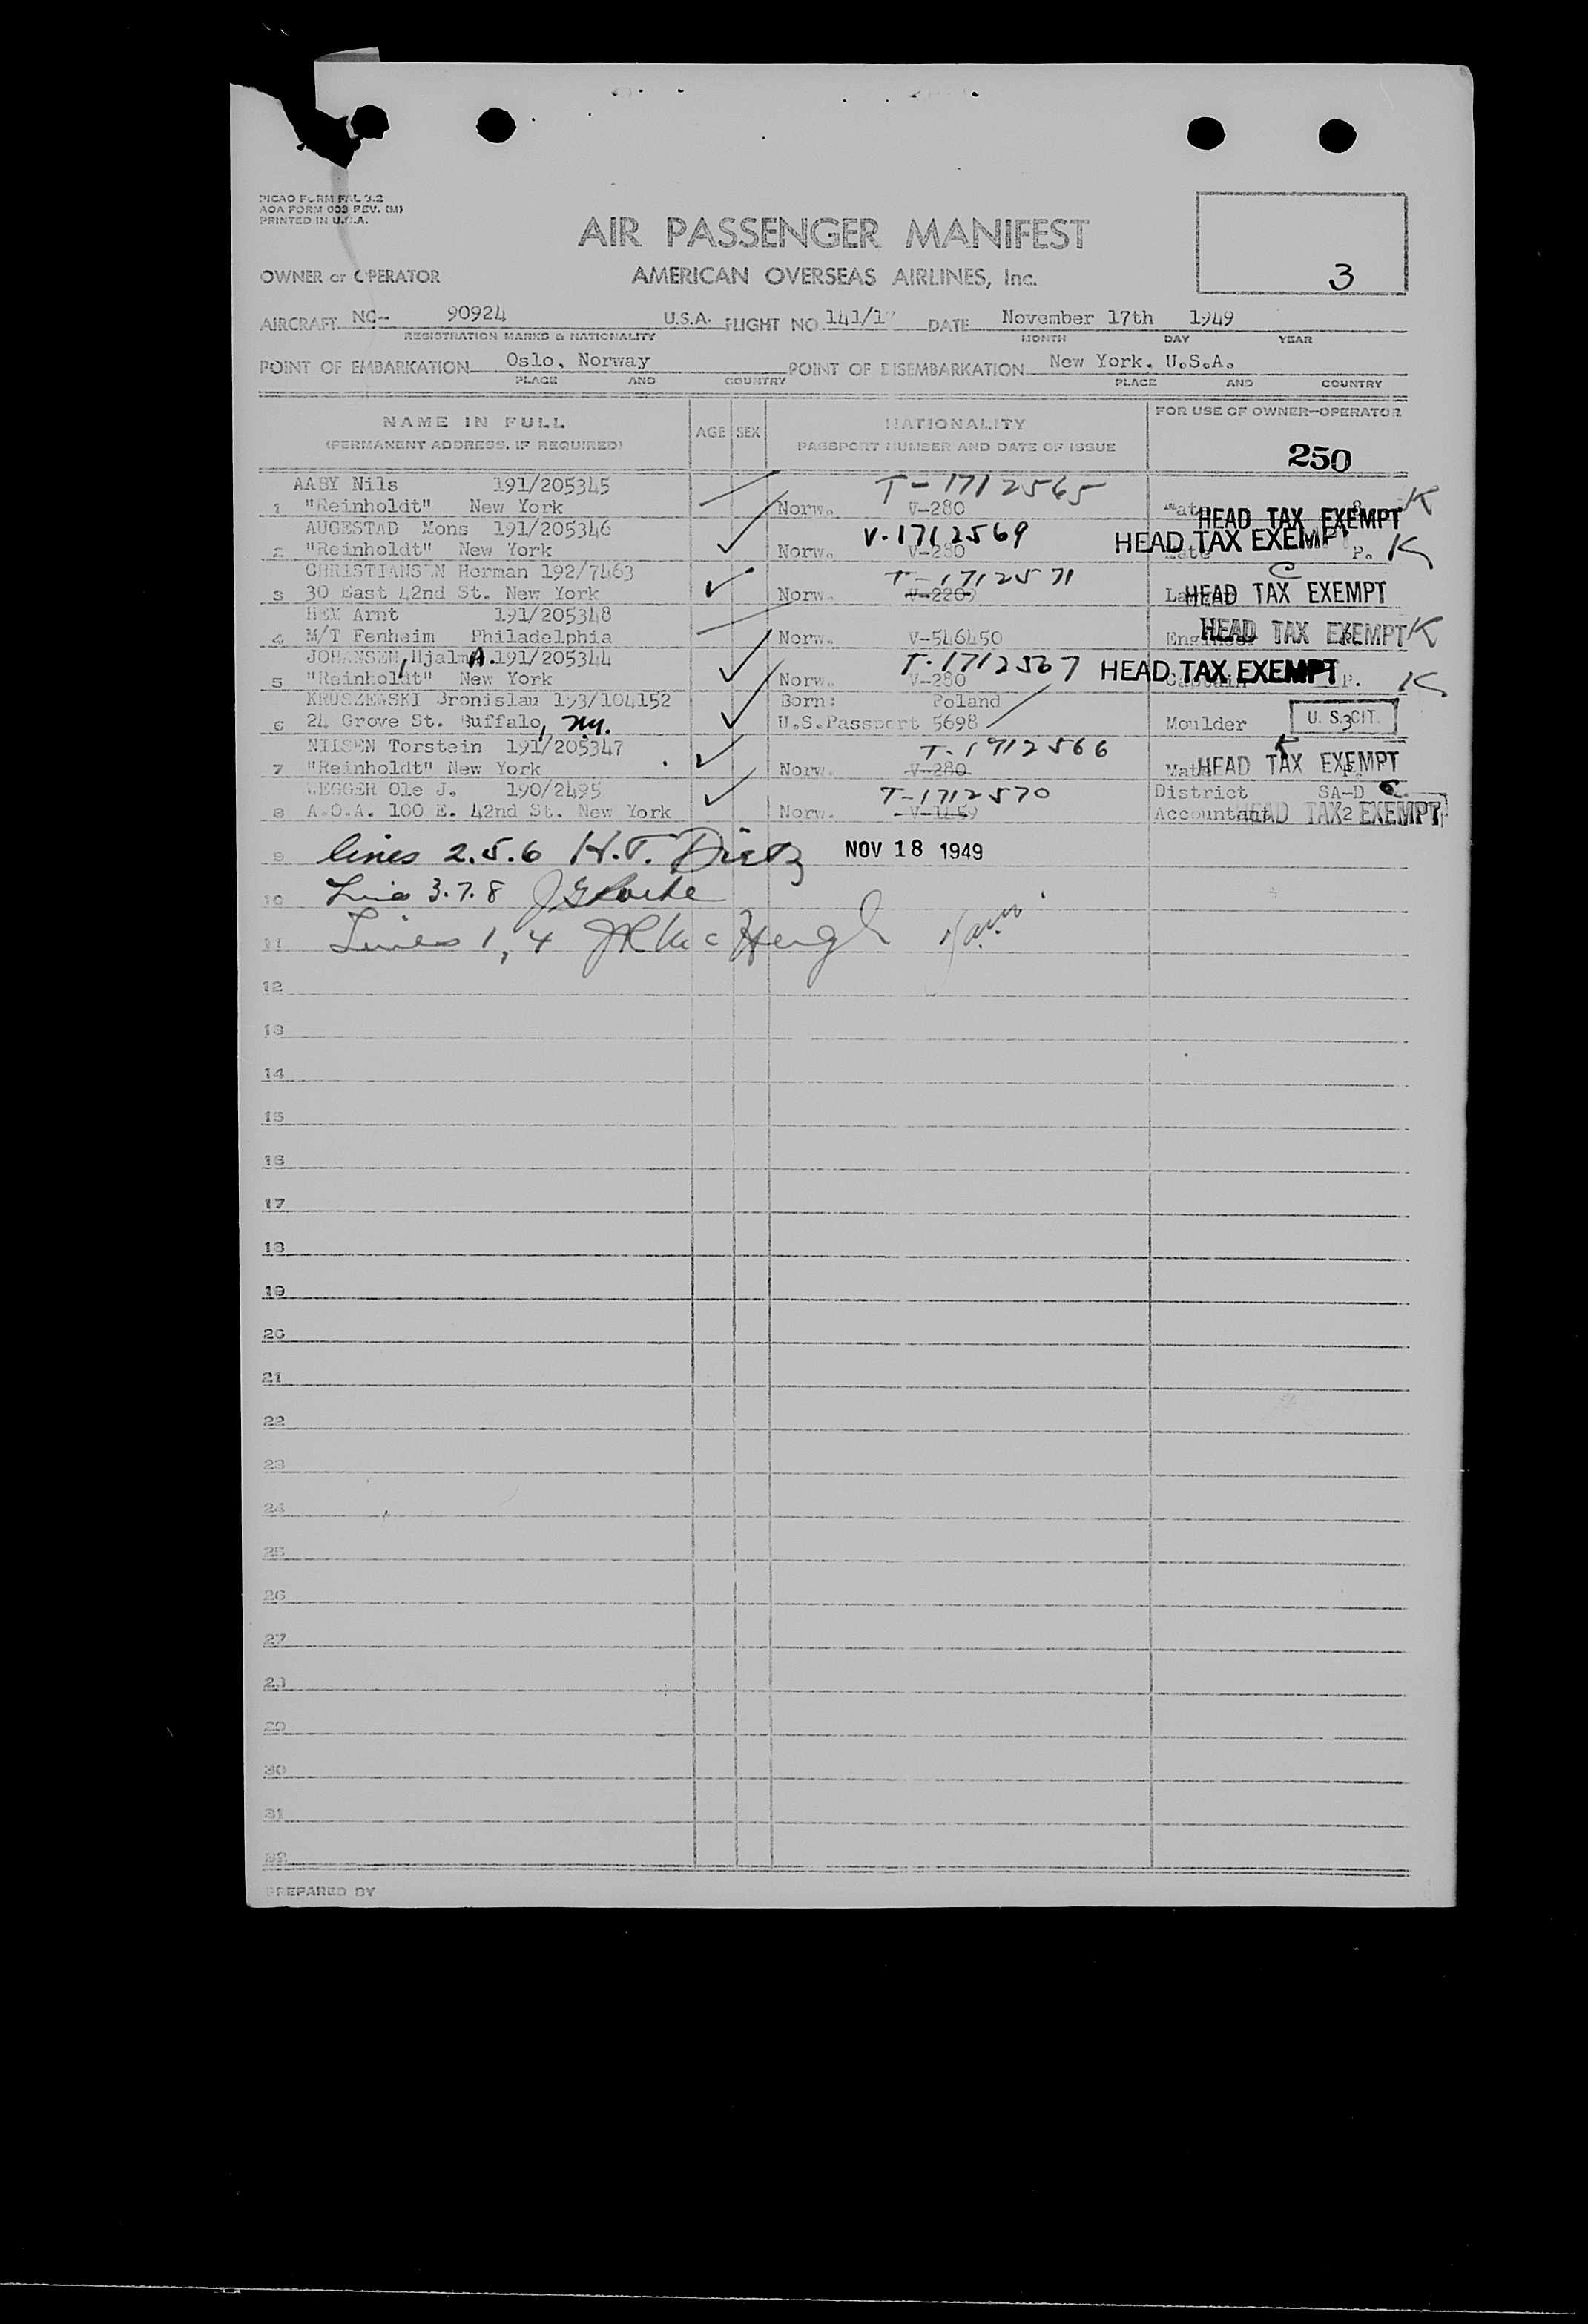 PICAO FORM FAL 3.2
AOA FORM 003 REV. (M)
PRINTED IN U.S.A.
AIR PASSENGER MANIFEST
3
OWNER or OPERATOR AMERICAN OVERSEAS AIRLINES, Inc.
AIRCRAFT NC-- 90924 U.S.A. FLIGHT NO. DATE November 17th 1949
REGISTRATION MARKS & NATIONALITY MONTH DAY YEAR
POINT OF EMBARKATION Oslo, Norway POINT OF DISEMBARKATION New York, U.S.A.
PLACE AND COUNTRY PLACE AND COUNTRY
NAME IN FULL AGE SEX NATIONALITY FOR USE OF OWNER-OPERATOR
(PERMANENT ADDRESS, IF REQUIRED) PASSPORT NUMBER AND DATE OF ISSUE
250
AABY Nils 191/205345 T-1712565
1 "Reinholdt" New York Norw. V-280 HEAD TAX EXEMPT K
AUGESTAD Mons 191/205346 V-1712569
2 "Reinholdt" New York Norw. V-280 HEAD TAX EXEMPT P. K
CHRISTIANSEN Herman 192/7463 T-1712571 C
3 30 East 42nd St. New York Norw. V-2209 HEAD TAX EXEMPT
HEX Arnt 191/205348
4 M/T Fenheim Philadelphia Norw. V-546450 Engineer HEAD TAX EXEMPT K
JOHANSEN, Hjalm A. 191/205344 T-1712567
5 "Reinholdt" New York Norw. V-280 Captain HEAD TAX EXEMPT P. K
KRUSZEWSKI Bronislau 193/104152 Born: Poland
6 24 Grove St. Buffalo, N.Y. U.S.Passport 5698 Moulder U. S. CIT. 3
NILSEN Torstein 191/205347 T-1712566 K
7 "Reinholdt" New York Norw. V-280 Mate HEAD TAX EXEMPT
WEGGER Ole J. 190/2495 T-1712570 District SA-D C
8 A.O.A. 100 E. 42nd St. New York Norw. Accountant HEAD TAX EXEMPT 2
9 lines 2.5.6 H.T. Dietz NOV 18 1949
10 Line 3.7.8
11 Lines 1, 4 JR McHugh
12
13
14
15
16
17
18
19
20
21
22
23
24
25
26
27
28
29
30
31
32
PREPARED BY